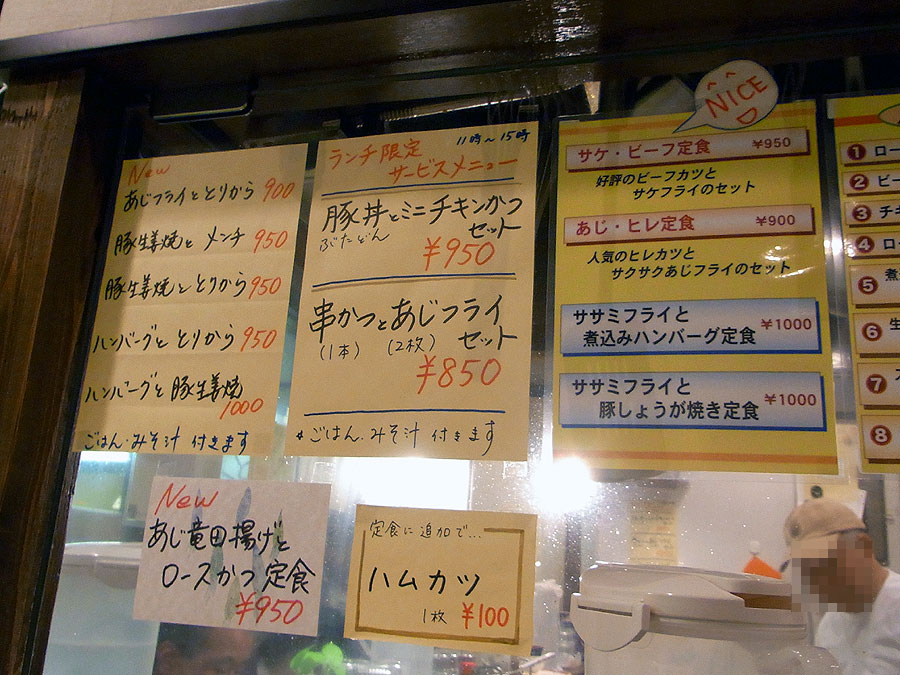 New
あじフライととりから 900
豚生姜焼と メンチ 950
豚生姜焼ととりから 950
ハンバーグととりから 950
ハンバーグと豚生姜焼
1000
ごはん.みそ汁 付きます
11時～15時
ランチ限定
サービスメニュー
豚丼とミニチキンかつ
ぶたどん
セット
¥950
串かつとあじフライ
(1本) (2枚) セット
¥850
*ごはん.みそ汁 付きます
NICE
サケ・ビーフ定食 ¥950
好評のビーフカツと
サケフライのセット
あじ・ヒレ定食 ¥900
人気のヒレカツと
サクサクあじフライのセット
ササミフライと
煮込みハンバーグ定食 ¥1000
ササミフライと
豚しょうが焼き定食 ¥1000
1 ロー
2 ビー
3 チキ
4 ロー
5 煮
6 生
7
8
New
あじ竜田揚げと
ロースかつ定食
¥950
定食に追加で...
ハムカツ
1枚 ¥100